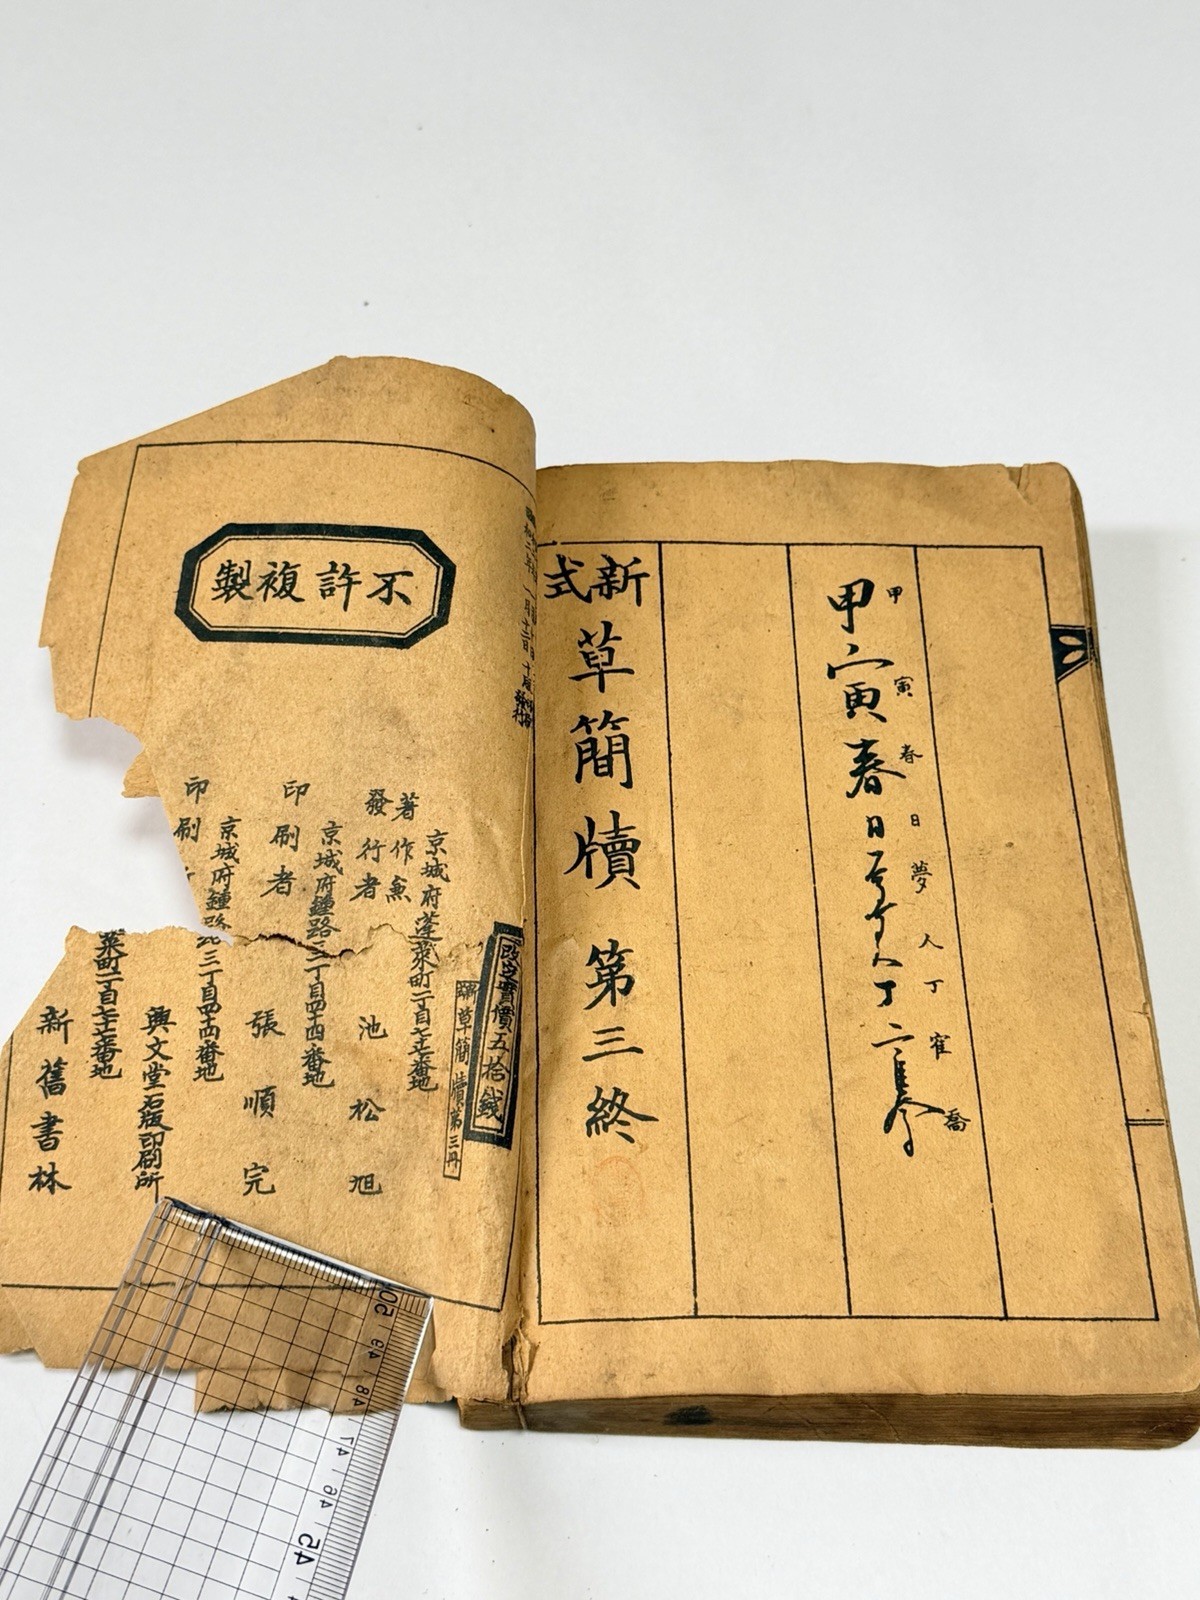 甲寅春日夢人丁寉喬
甲寅春日夢人丁寉喬
新式草簡牘 第三終
不許複製
二年 一月十二日 十版發行
改定實價五拾錢
草簡牘第三冊
京城府蓬萊町二丁目七十七番地
著作兼發行者 池松旭
京城府鍾路三丁目四十四番地
印刷者 張順完
京城府鍾路三丁目四十四番地
印刷 興文堂石版印刷所
萊町二丁目七十七番地
新舊書林
50 49 48 47 46 45